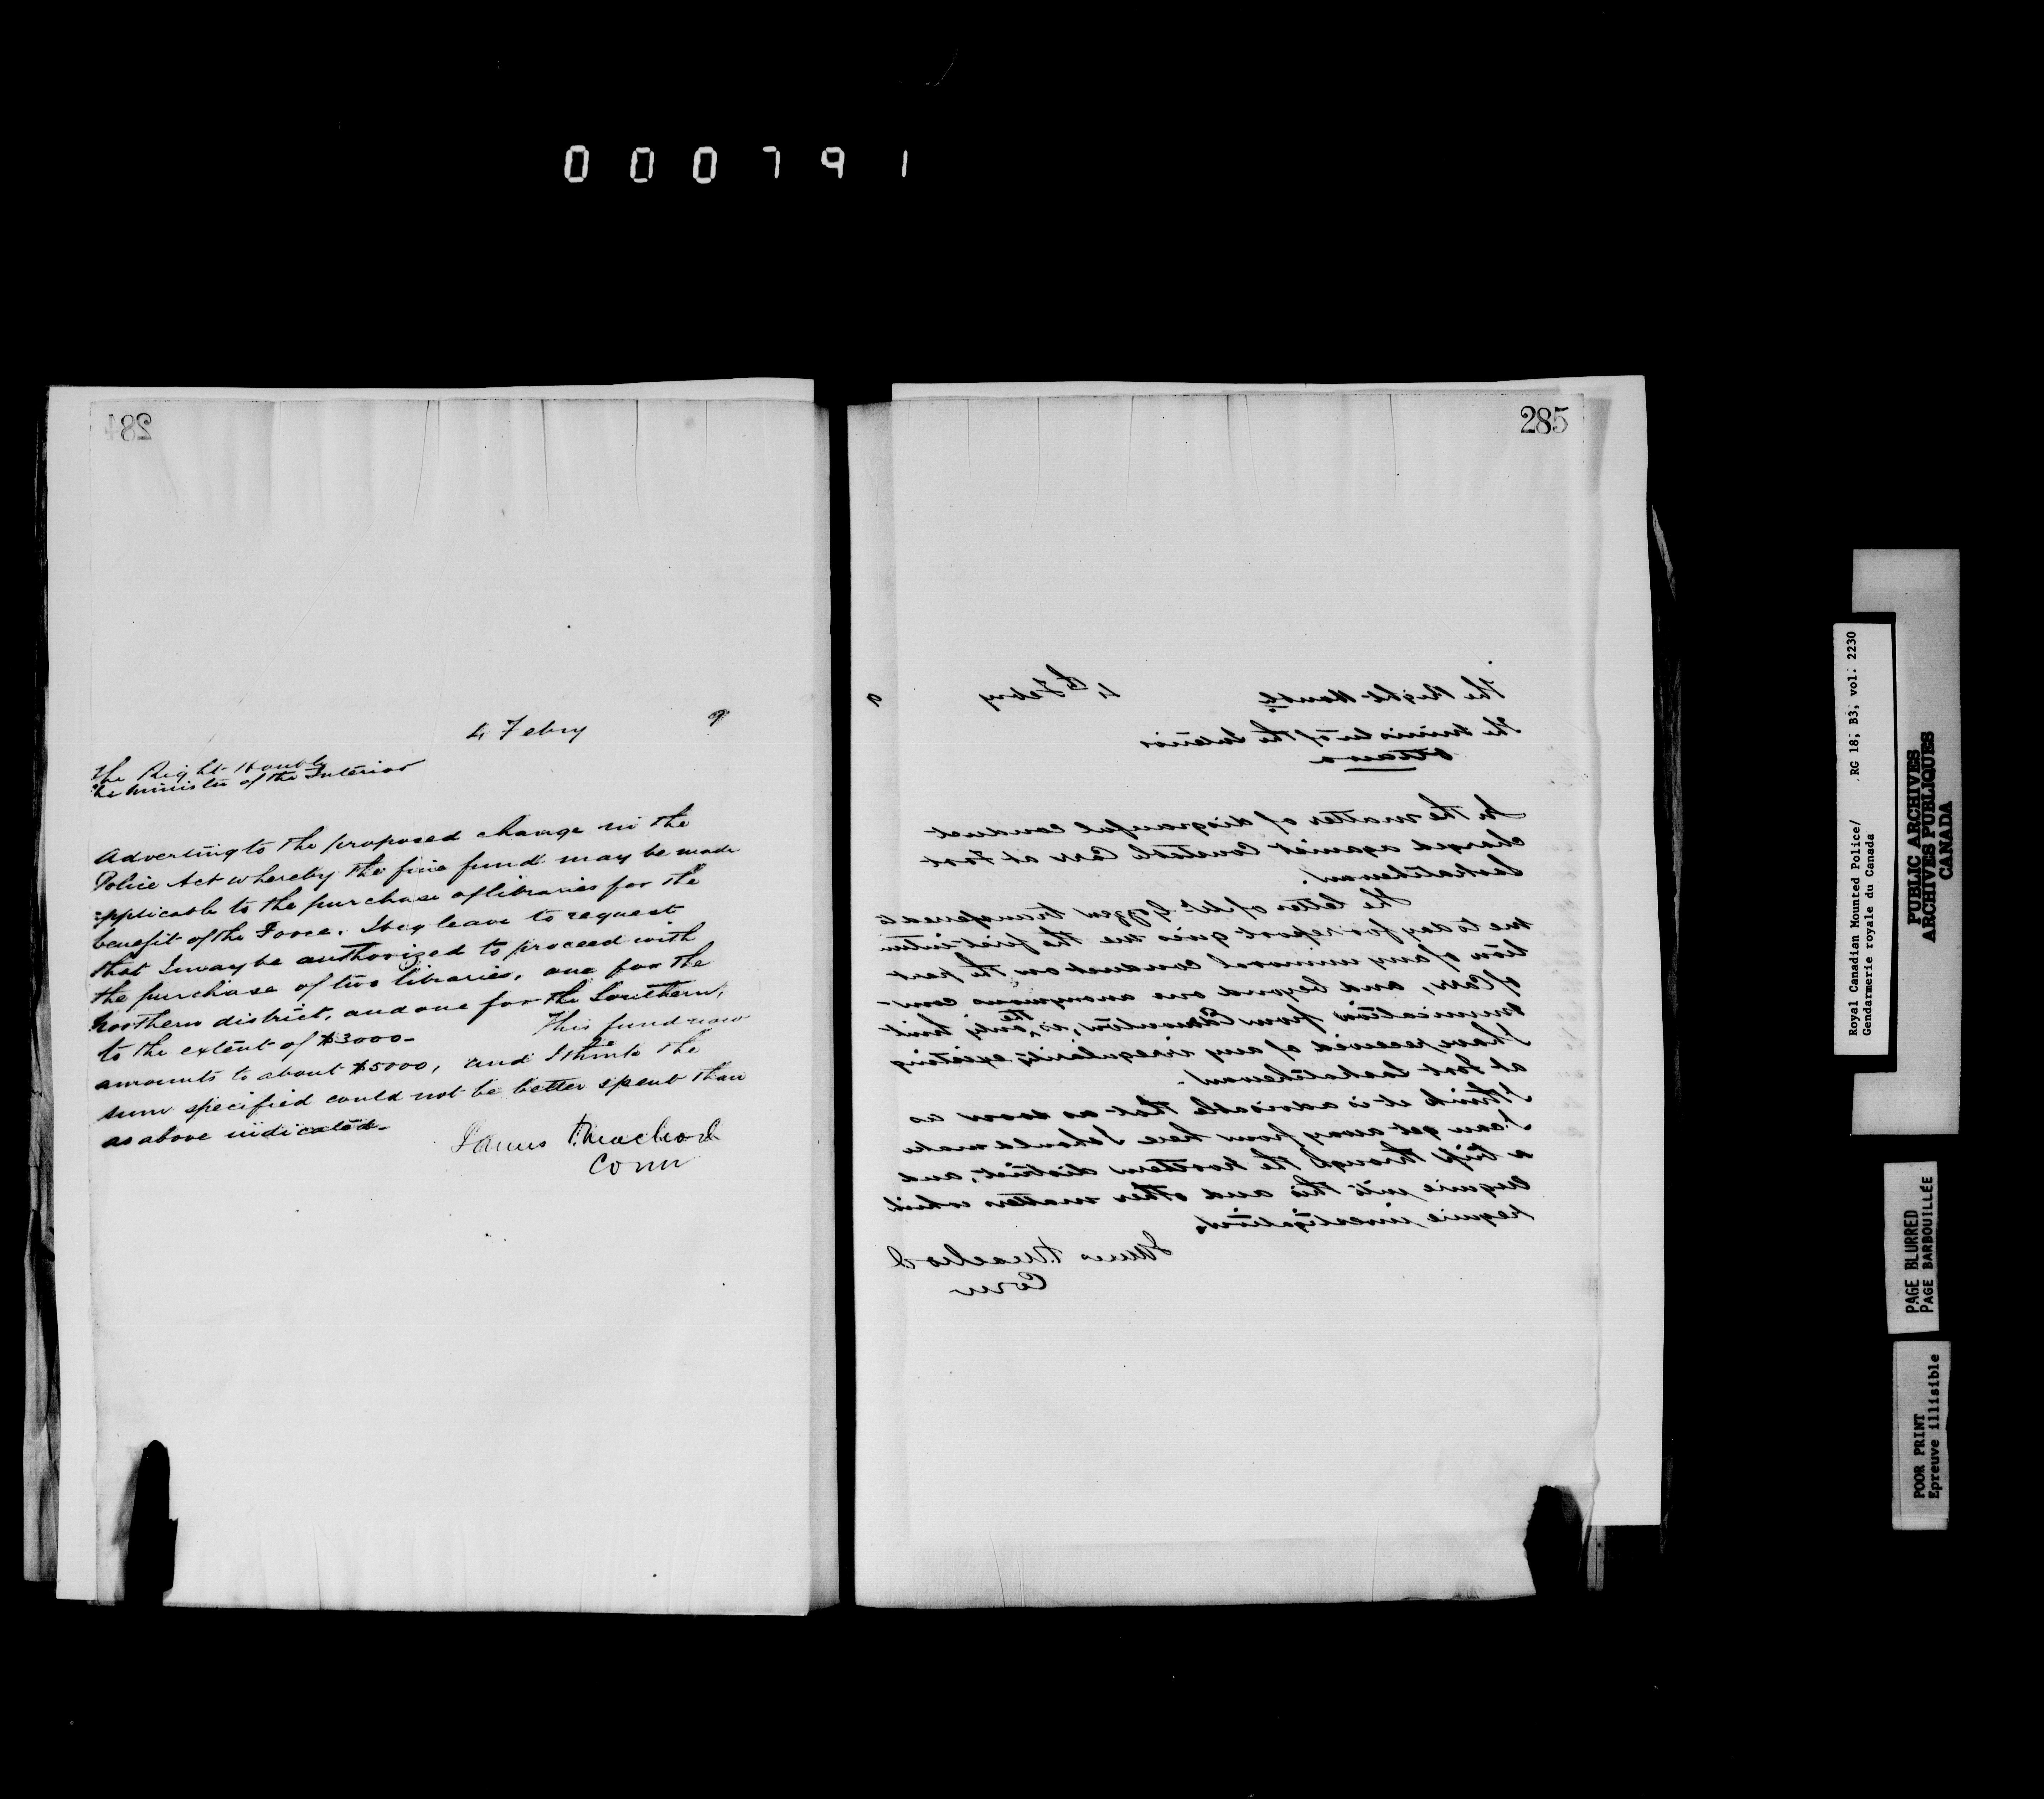 000791
284
4 Febry 9
The Right Honble
The Minister of the Interior
Adverting to the proposed change in the
Police Act whereby the fine fund may be made
applicable to the purchase of libraries for the
benefit of the Force, I beg leave to request
that I may be authorized to proceed with
the purchase of two libraries, one for the
Northern district, and one for the Southern,
to the extent of $3000- This fund now
amounts to about $5000, and I think the
sum specified could not be better spent than
as above indicated-
James F. Macleod
Comr
285
The Right Honble 4th Febry 9
The Minister of the Interior
Ottawa
In the matter of disgraceful conduct
charged against Constable Carr at Fort
Saskatchewan.
The letter of Mr transferred to
me today for report gives me the first intima
tion of any immoral conduct on the part
of Carr, and beyond one anonymous com-
munication from Edmonton, is the only hint
I have received of any irregularity existing
at Fort Saskatchewan.
I think it is advisable that as soon as
I can get away from here I should make
a trip through the Northern district, and
enquire into this and other matters which
require investigation
James F. Macleod
Com
Royal Canadian Mounted Police/ RG 18; B3; vol. 2230
Gendarmerie royale du Canada
PUBLIC ARCHIVES
ARCHIVES PUBLIQUES
CANADA
PAGE BLURRED
PAGE BARBOUILLÉE
POOR PRINT
Epreuve illisible